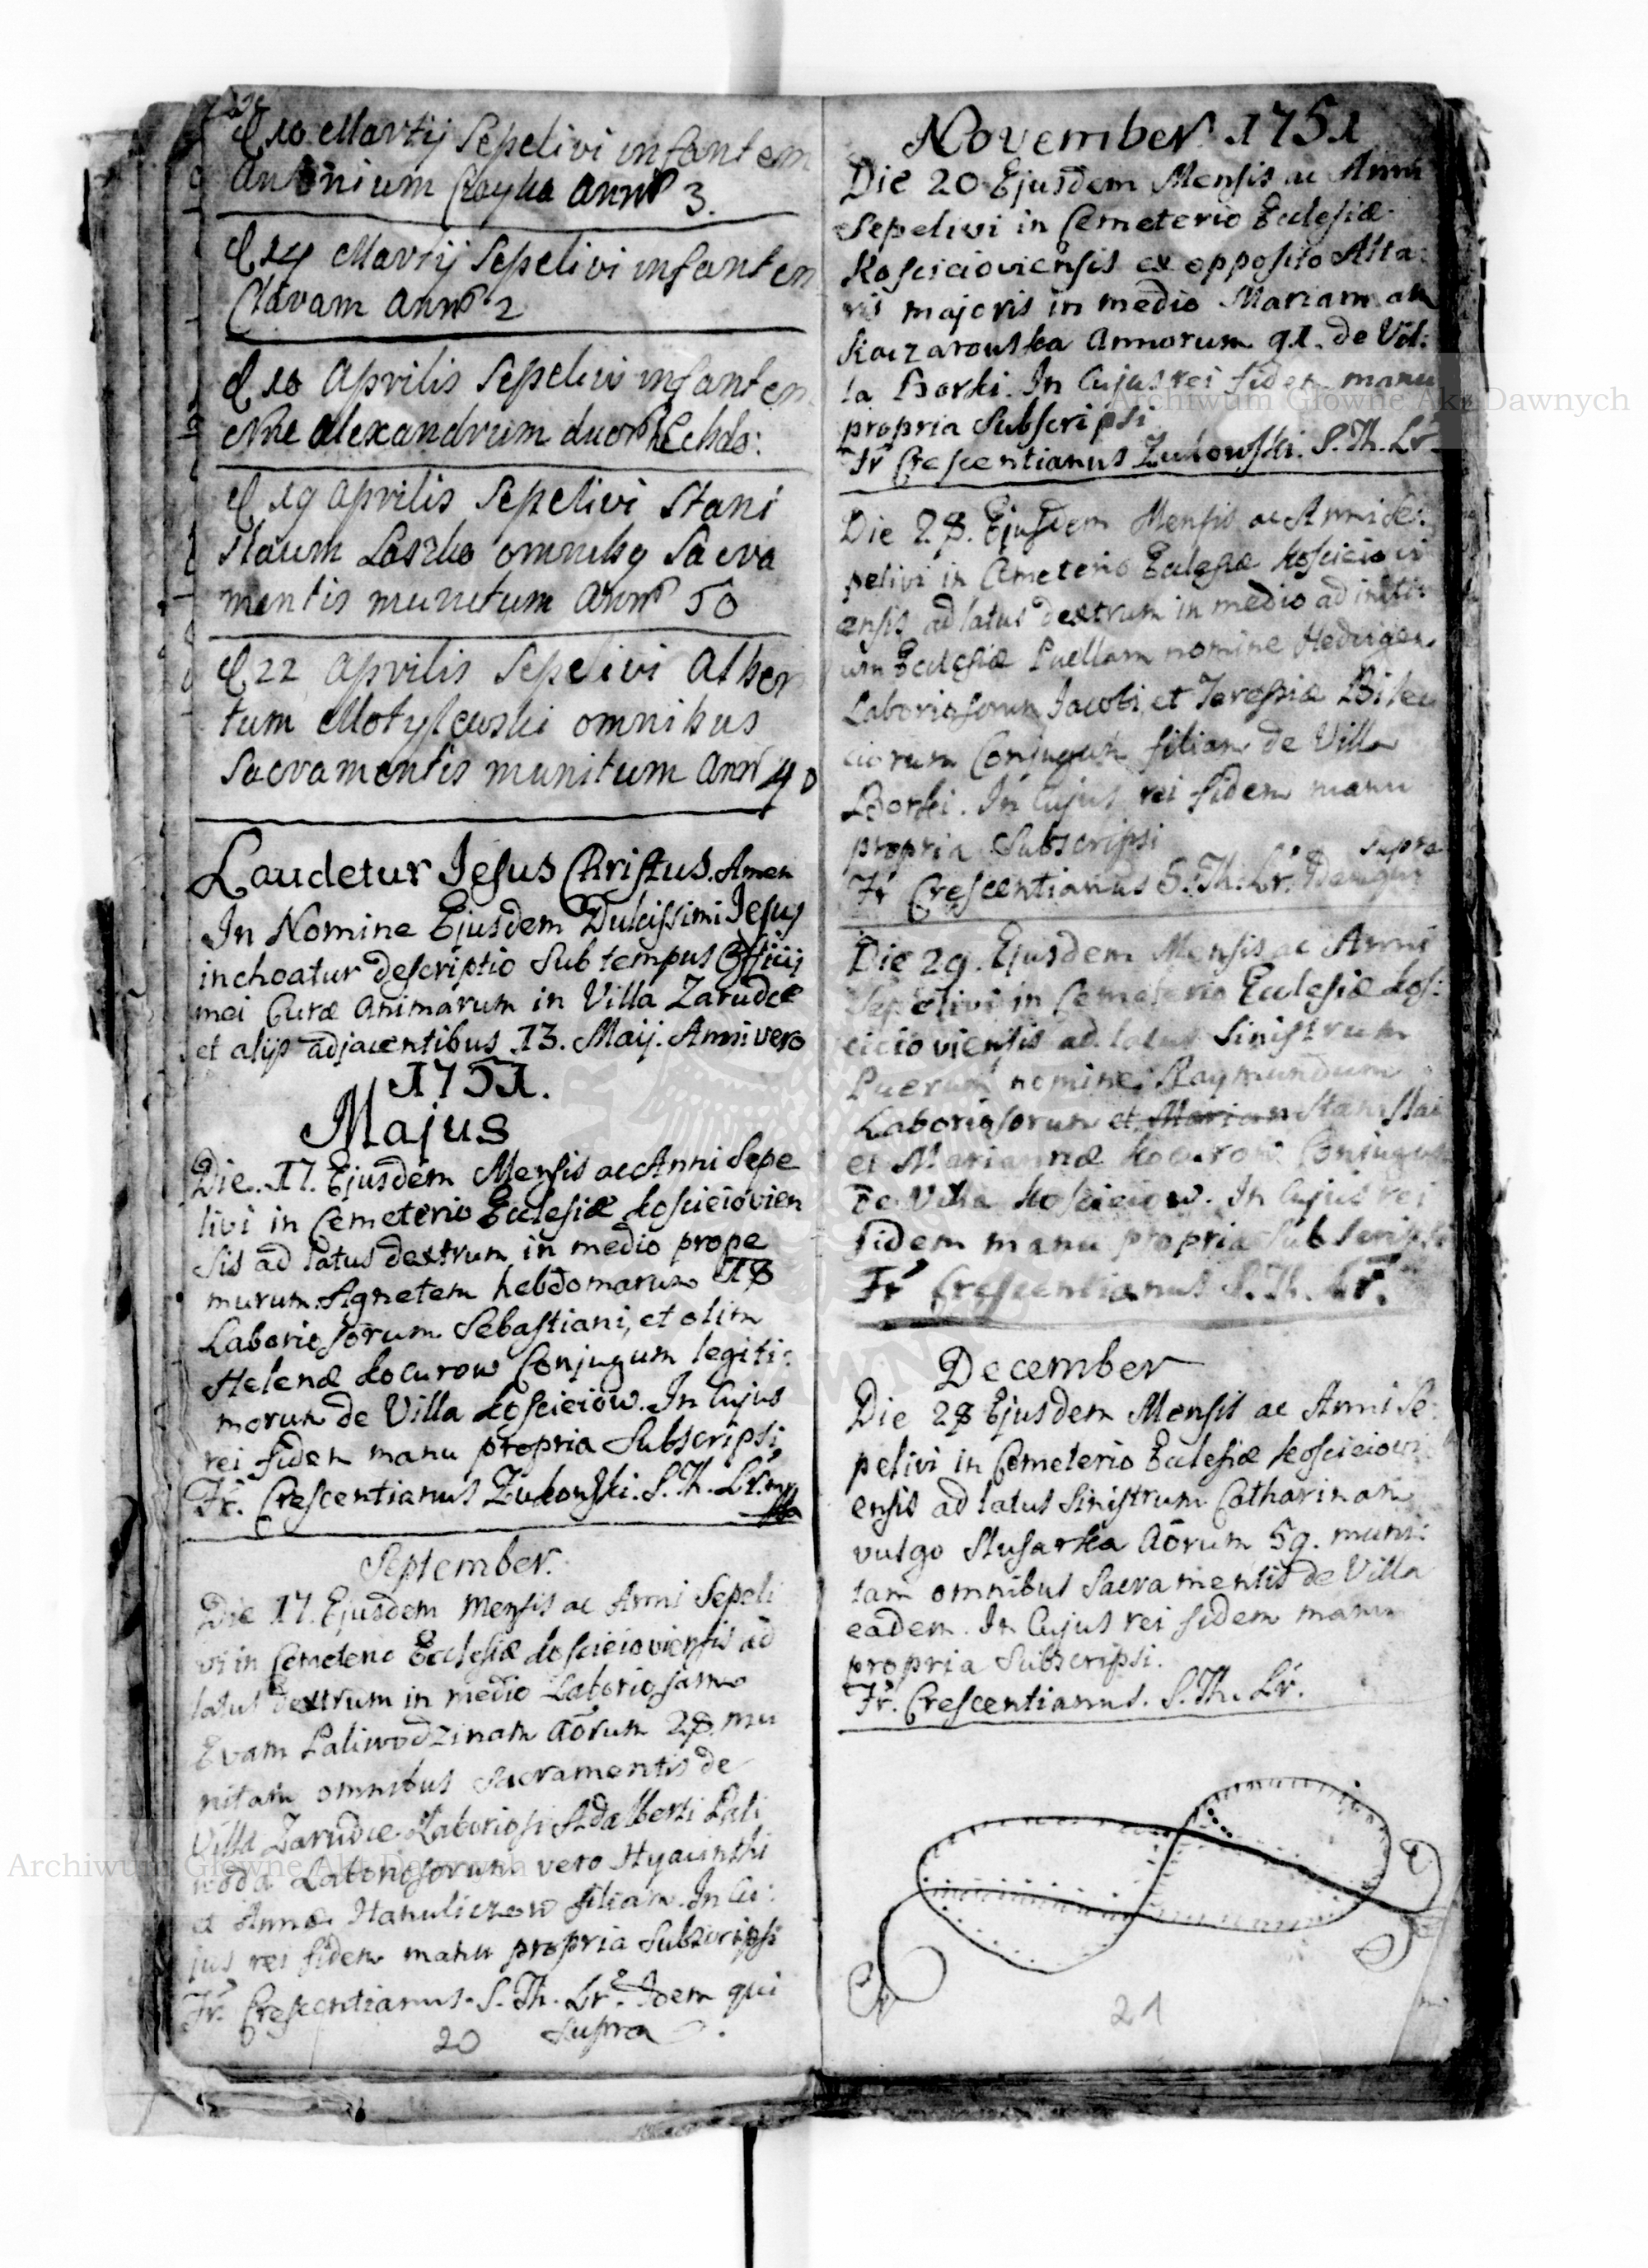 d 10 Martij Sepelivi infantem
Antonium annor 3.
d 14 Martij Sepelivi infantem
Claram annor 2
d 10 Aprilis Sepelivi infantem
Alexandrum duor hebdo:
d 19 Aprilis Sepelivi Stani
slaum Laszko omnibq Sacra
mentis munitum Annor 50
d 22 Aprilis Sepelivi Alber
tum Motylewski omnibus
Sacramentis munitum Ann 40
Laudetur Jesus Christus. Amen
In Nomine Ejusdem Dulcissimi Jesu
inchoatur descriptio Sub tempus Officij
mei Curæ Animarum in Villa Zarudce
et alijs adjacentibus 13. Maij. Anni vero
1751.
Majus
Die. 17. Ejusdem Mensis ac Anni Sepe
livi in Cemeterio Ecclesiæ Koscieiovien
sis ad latus dextrum in medio prope
murum. Agnetem hebdomarum 18
Laboriosorum Sebastiani, et olim
Helenæ Kocurow Conjugum legiti:
morum de Villa Koscieiow. In Cujus
rei fidem manu propria Subscripsi
Fr. Crescentianus Zukowski. S. Th. Lr. mp
September.
Die 17. Ejusdem Mensis ac Anni Sepeli
vi in Cemeterio Ecclesiæ Koscieioviensis ad
latus dextrum in medio Laboriosam
Evam Paliwodzinam Aõrum 28. mu
nitam omnibus Sacramentis de
Villa Zarudce Laboriosi Adalberti Pali
woda Laboriosorum vero Hyacinthi
et Annæ Hanuliczow filiam. In Cu:
jus rei fidem manu propria Subscripsi
Fr. Crescentianus. S. Th. Lr. Idem qui
supra
20
November 1751
Die 20 Ejusdem Mensis ac Anni
Sepelivi in Cemeterio Ecclesiæ
Koscieioviensis ex opposito Alta:
ris majoris in medio Mariannam
Kaczarowska Annorum 91. de Vil:
la Borki. In Cujus rei fidem manu
propria Subscripsi
Fr Crescentianus Zukowski. S. Th. Lr.
Die 28. Ejusdem Mensis ac Anni Se:
pelivi in Cemeterio Ecclesiæ Koscieiovi
ensis ad latus dextrum in medio ad initi:
um Ecclesiæ Puellam nomine Hedvigem
Laboriosorum Jacobi et Teressiæ Bilew
ciorum Conjugum filiam de Villa
Borki. In Cujus rei fidem manu
propria Subscripsi
Fr Crescentianus S. Th. Lr. Idem qui supra
Die 29. Ejusdem Mensis ac Anni
Sepelivi in Cemeterio Ecclesiæ Kos:
cieioviensis ad latus Sinistrum
Puerum nomine Raymundum
Laboriosorum et Marian Stanislai
et Mariannæ Kocurow Conjugum
de Villa Koscieiow. In Cujus rei
fidem manu propria Subscripsi
Fr Crescentianus S. Th. Lr.
December
Die 28 Ejusdem Mensis ac Anni Se:
pelivi in Cemeterio Ecclesiæ Koscieiowi
ensis ad latus Sinistrum Catharinam
vulgo Slusarka Aõrum 59. muni:
tam omnibus Sacramentis de Villa
eadem. In Cujus rei fidem manu
propria Subscripsi.
Fr. Crescentianus. S. Th. Lr.
21
Archiwum Główne Akt Dawnych
Archiwum Główne Akt Dawnych